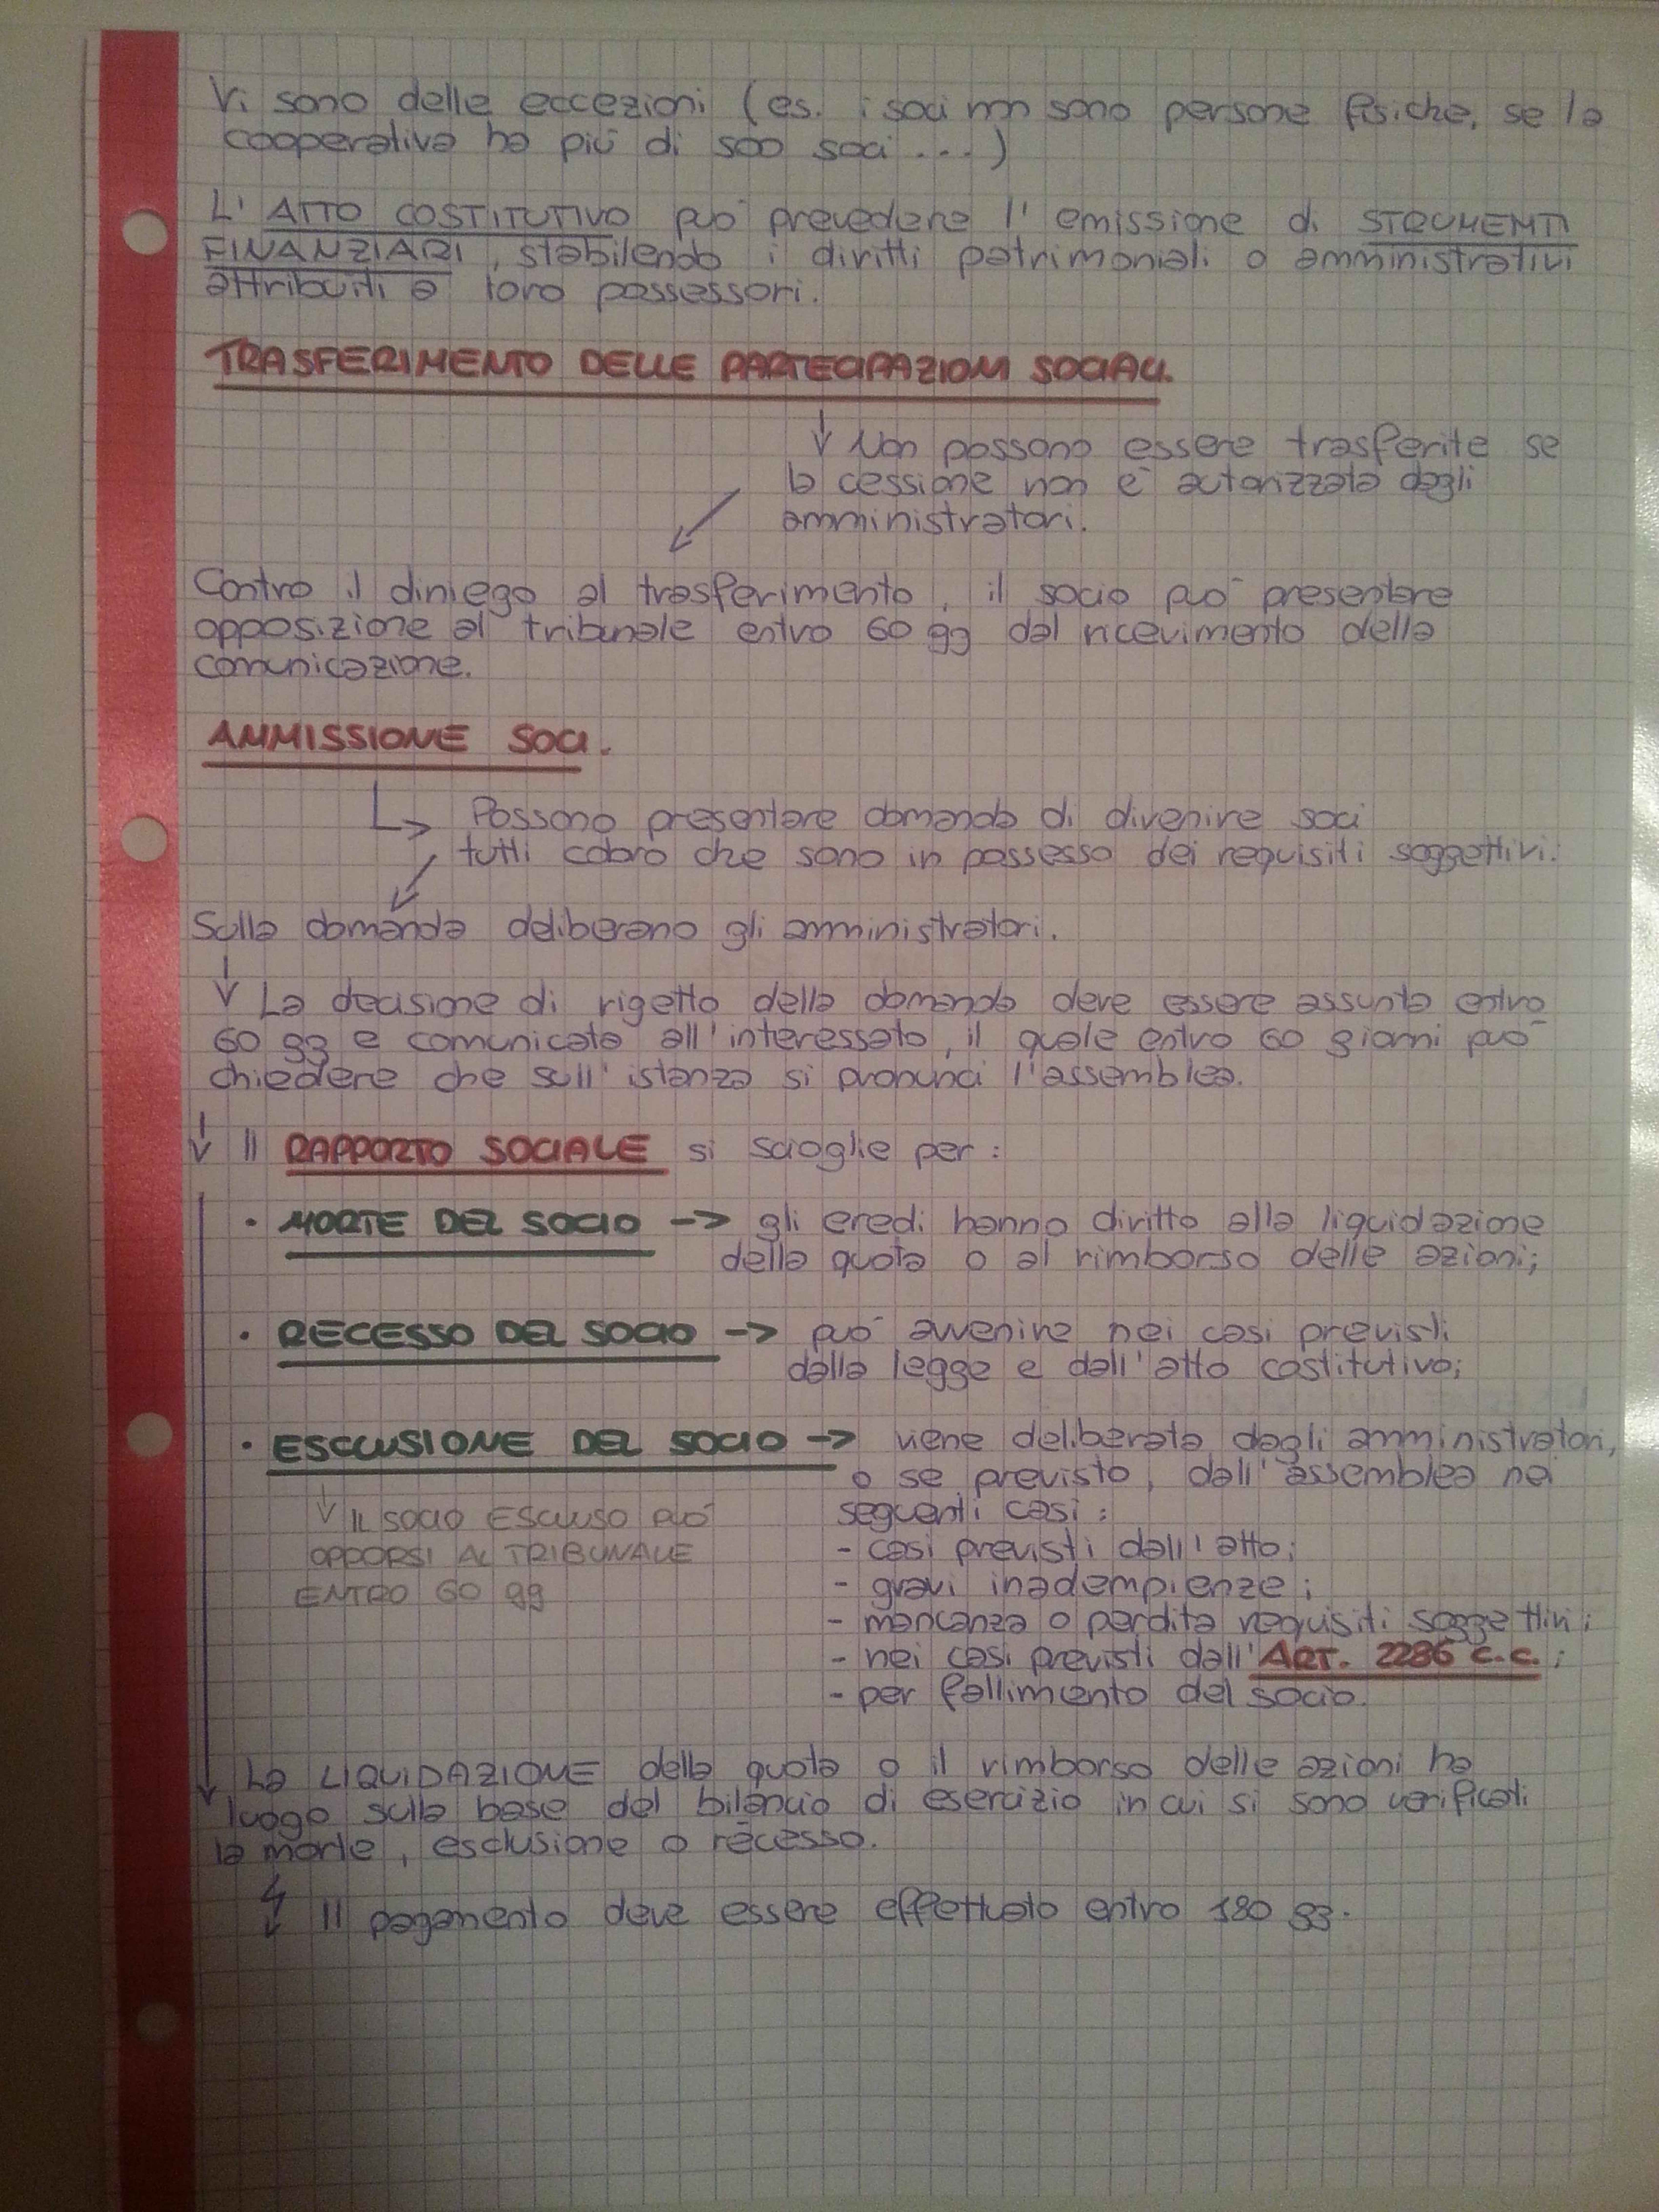 Vi sono delle eccezioni (es. i soci non sono persone fisiche, se la
cooperativa ha più di 500 soci ...)
L' ATTO COSTITUTIVO può prevedere l' emissione di STRUMENTI
FINANZIARI, stabilendo i diritti patrimoniali o amministrativi
attribuiti a loro possessori.
TRASFERIMENTO DELLE PARTECIPAZIONI SOCIALI.
↓ Non possono essere trasferite se
la cessione non è autorizzata dagli
amministratori.
Contro il diniego al trasferimento, il socio può presentare
opposizione al tribunale entro 60 gg dal ricevimento della
comunicazione.
AMMISSIONE SOCI.
↳ Possono presentare domanda di divenire soci
tutti coloro che sono in possesso dei requisiti soggettivi.
Sulla domanda deliberano gli amministratori.
↓ La decisione di rigetto della domanda deve essere assunta entro
60 gg e comunicata all'interessato, il quale entro 60 giorni può
chiedere che sull' istanza si pronunci l'assemblea.
↓ Il RAPPORTO SOCIALE si scioglie per:
• MORTE DEL SOCIO -> gli eredi hanno diritto alla liquidazione
della quota o al rimborso delle azioni;
• RECESSO DEL SOCIO -> può avvenire nei casi previsti
dalla legge e dall'atto costitutivo;
• ESCLUSIONE DEL SOCIO -> viene deliberata dagli amministratori,
o se previsto, dall'assemblea nei
seguenti casi:
- casi previsti dall'atto;
- gravi inadempienze;
- mancanza o perdita requisiti soggettivi;
- nei casi previsti dall'ART. 2286 c.c.;
- per fallimento del socio.
↓ IL SOCIO ESCLUSO PUÒ
OPPORSI AL TRIBUNALE
ENTRO 60 gg
La LIQUIDAZIONE della quota o il rimborso delle azioni ha
luogo sulla base del bilancio di esercizio in cui si sono verificati
la morte, esclusione o recesso.
↓ Il pagamento deve essere effettuato entro 180 gg.